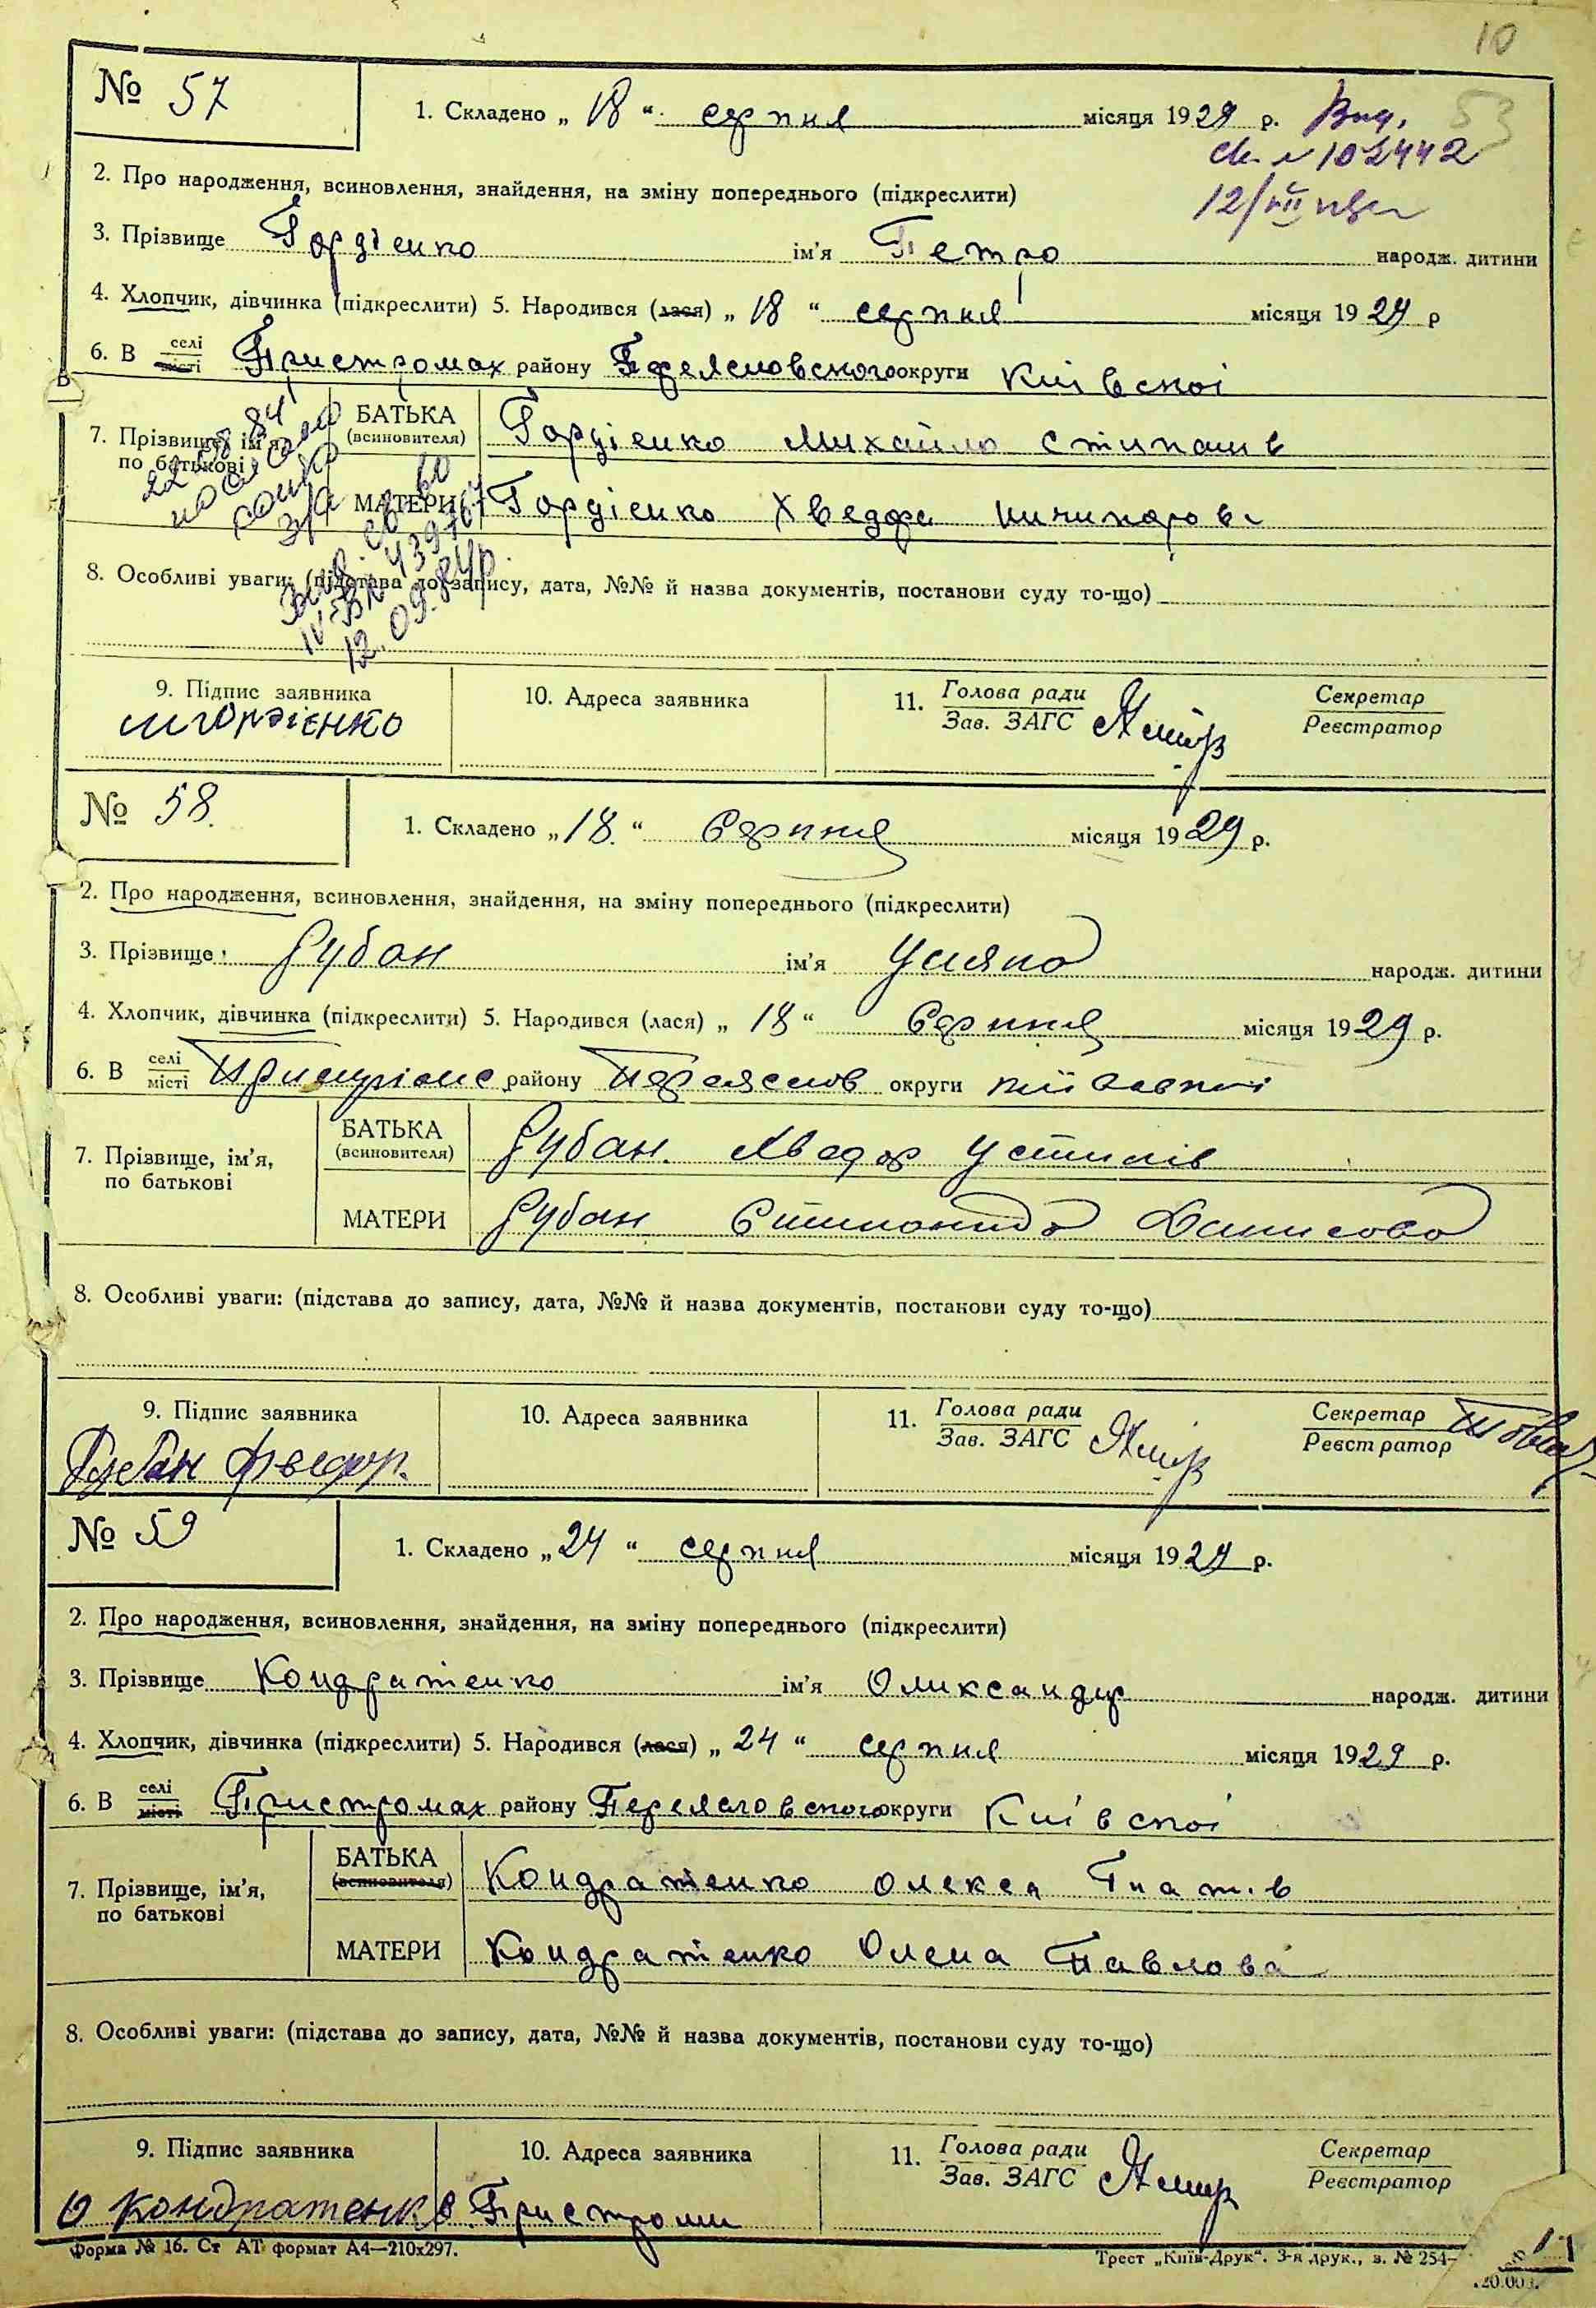 10
№ 57
1. Складено „ 18 “ серпня місяця 1929 р. Вид. 53
св. № 102442
12/VII
2. Про народження, всиновлення, знайдення, на зміну попереднього (підкреслити)
3. Прізвище Гордіенко ім’я Петро народж. дитини
4. Хлопчик, дівчинка (підкреслити) 5. Народився (лася) „ 18 “ серпня місяця 1929 р
6. В селі місті Пристромах району Переясловского округи Київскої
7. Прізвище, ім’я, по батькові
БАТЬКА (всиновителя) Гордіенко Михайло Стипанів
МАТЕРИ Гордіенко Хведора Ничипорова
8. Особливі уваги: (підстава до запису, дата, №№ й назва документів, постанови суду то-що)
12.09.84р.
9. Підпис заявника
10. Адреса заявника
11. Голова ради
Зав. ЗАГС
Секретар
Реєстратор
М Гордієнко
№ 58.
1. Складено „ 18. “ Серпня місяця 1929 р.
2. Про народження, всиновлення, знайдення, на зміну попереднього (підкреслити)
3. Прізвище Рубан ім’я Уляна народж. дитини
4. Хлопчик, дівчинка (підкреслити) 5. Народився (лася) „ 18 “ Серпня місяця 1929 р.
6. В селі місті району Переяслов округи
7. Прізвище, ім’я, по батькові
БАТЬКА (всиновителя) Рубан. Хведор Устинів
МАТЕРИ Рубан Степонида Данилова
8. Особливі уваги: (підстава до запису, дата, №№ й назва документів, постанови суду то-що)
9. Підпис заявника
10. Адреса заявника
11. Голова ради
Зав. ЗАГС
Секретар
Реєстратор
Рубан Фведор.
№ 59
1. Складено „ 24 “ серпня місяця 1929 р.
2. Про народження, всиновлення, знайдення, на зміну попереднього (підкреслити)
3. Прізвище Кондратенко ім’я Олександр народж. дитини
4. Хлопчик, дівчинка (підкреслити) 5. Народився (лася) „ 24 “ серпня місяця 1929 р.
6. В селі місті Пристромах району Переясловского округи Київскої
7. Прізвище, ім’я, по батькові
БАТЬКА (всиновителя) Кондратенко Олекса Гнатів
МАТЕРИ Кондратенко Олена Павлова
8. Особливі уваги: (підстава до запису, дата, №№ й назва документів, постанови суду то-що)
9. Підпис заявника
10. Адреса заявника
11. Голова ради
Зав. ЗАГС
Секретар
Реєстратор
О Кондратенко
с Пристроми
Форма № 16. Ст АТ формат А4—210х297.
Трест „Київ-Друк“. 3-я друк., з. № 254—